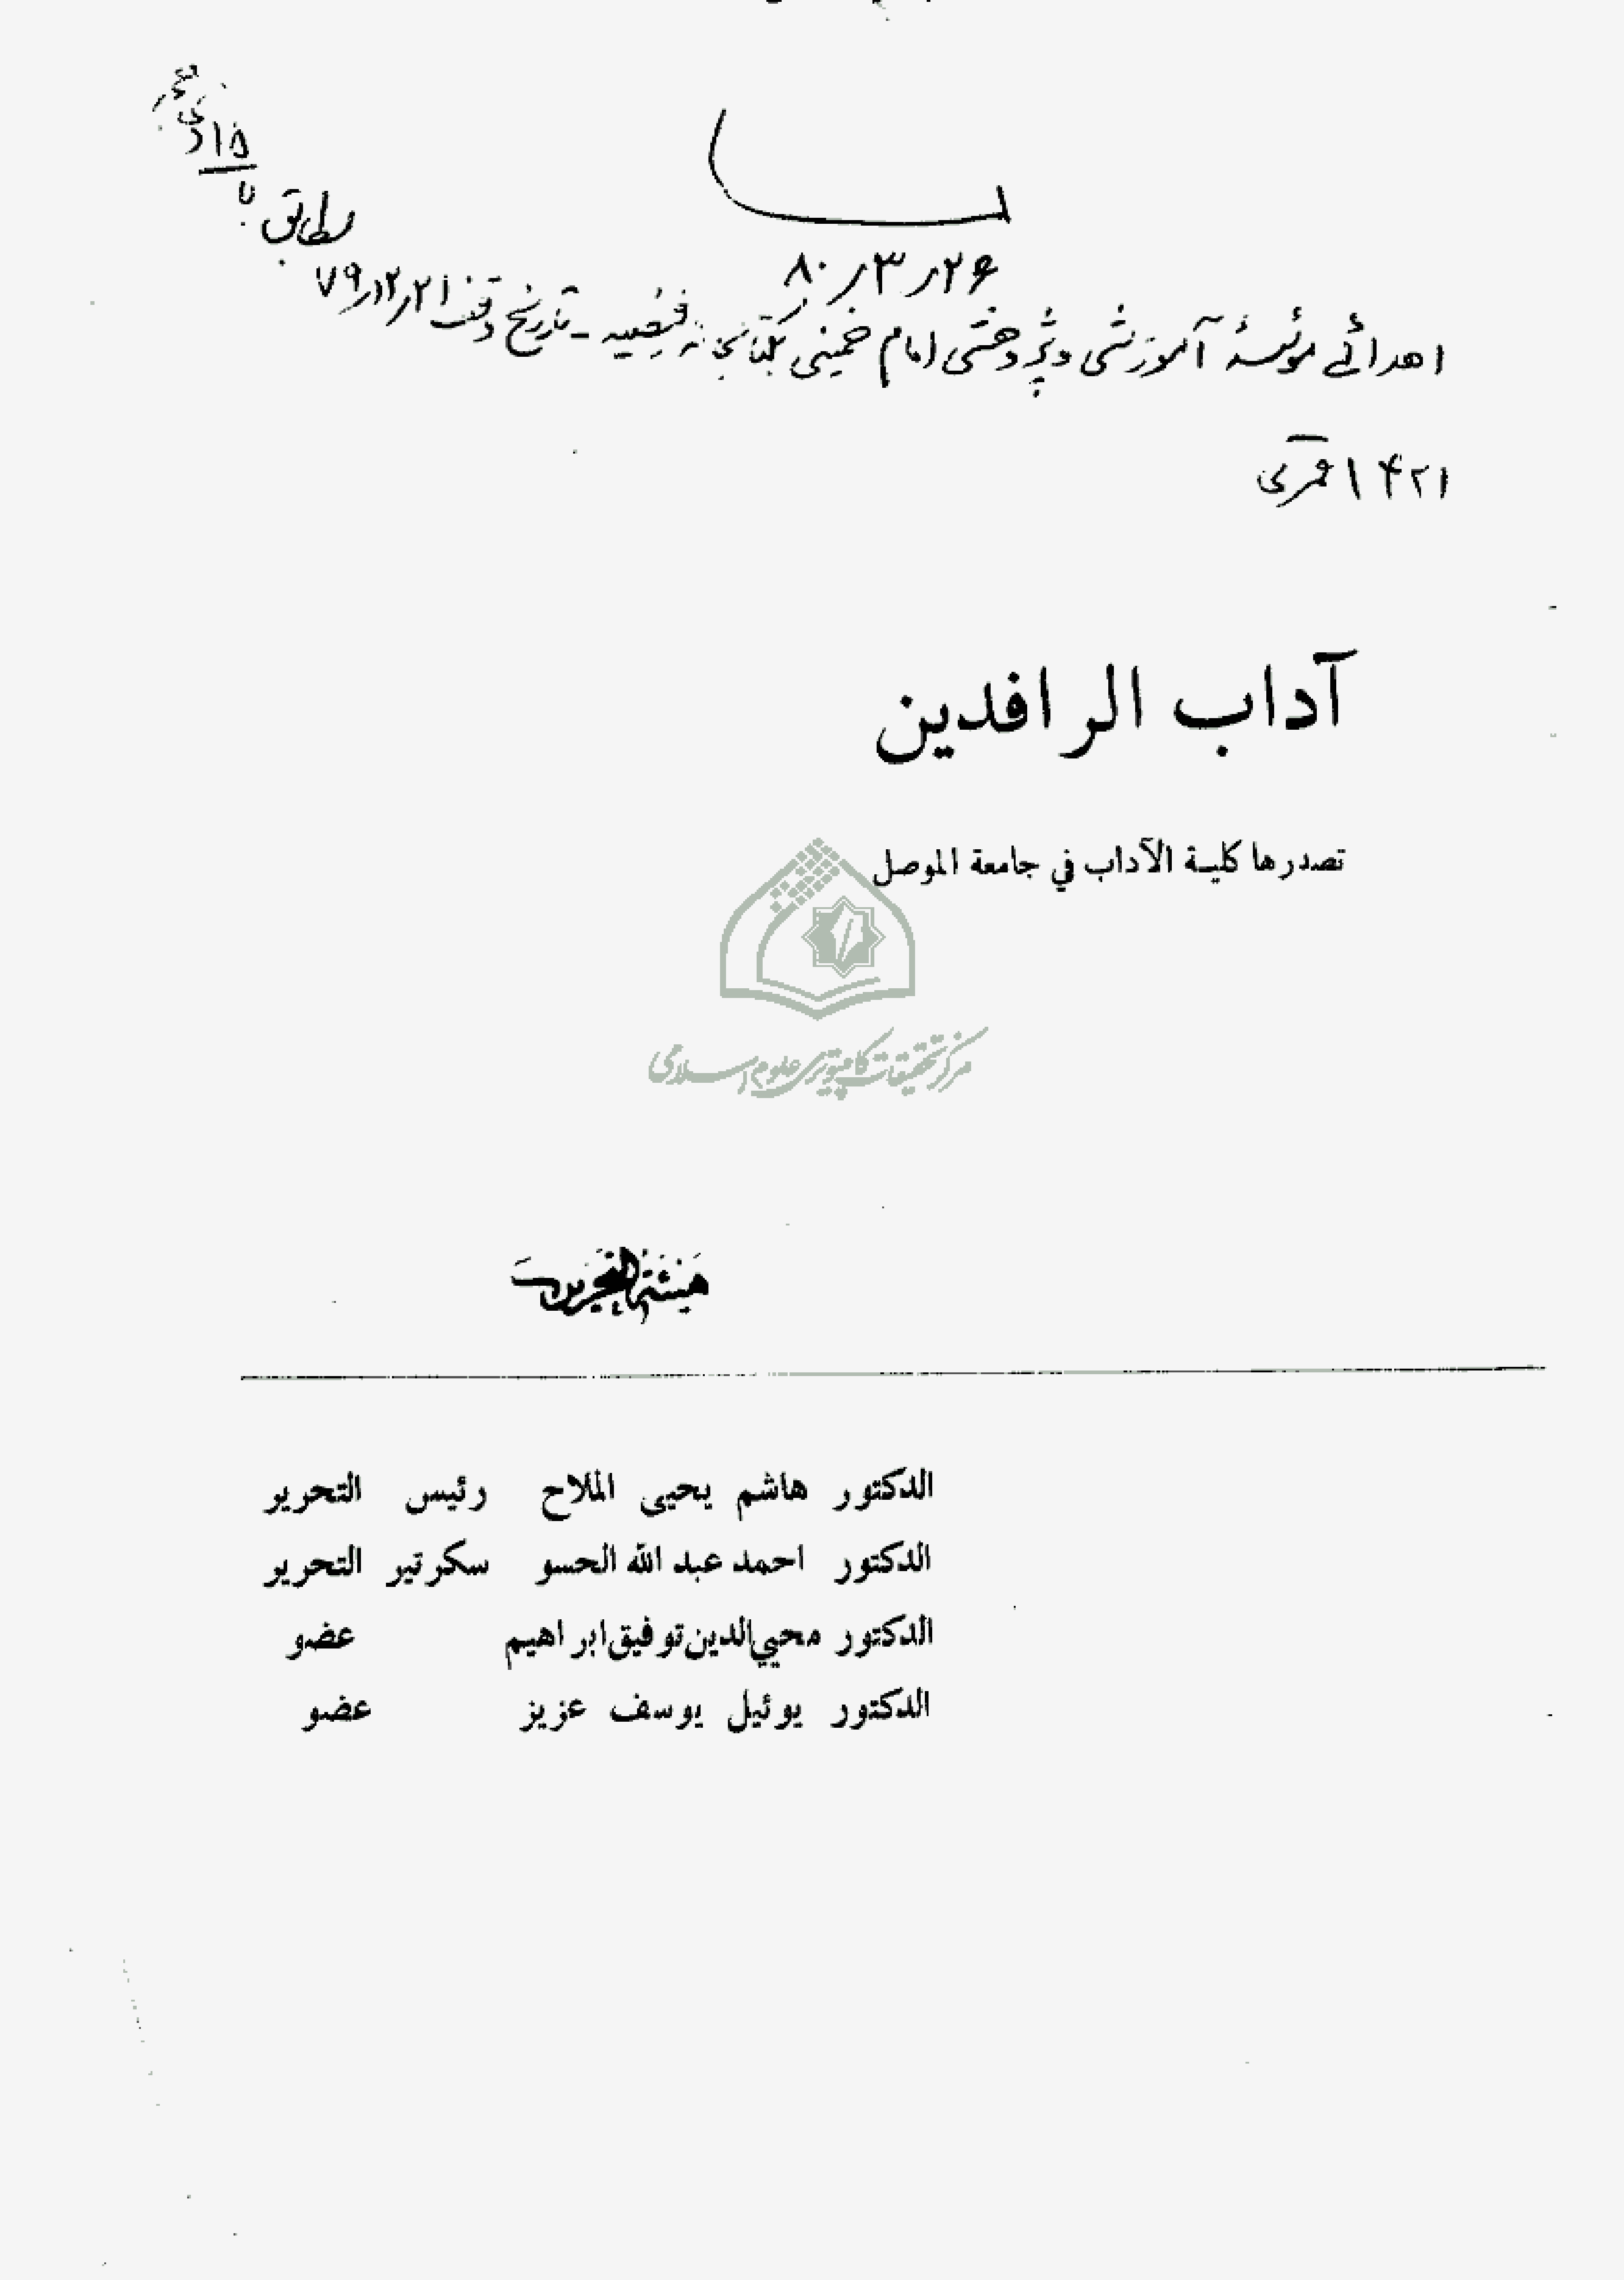 ۲۶ر۳ر۸۰
اهدائی مؤسسهٔ آموزشی و پژوهشی امام خمینی بکتابخانه فیضیه - تاریخ وقف ۲۱ر۱۲ر۷۹
مطابق با
۱۵
۱۴۲۱ قمری
آداب الرافدين
تصدرها كلية الآداب في جامعة الموصل
مرکز تحقیقات کامپیوتری علوم اسلامی
هيئة التحرير
الدكتور هاشم يحيى الملاح رئيس التحرير
الدكتور احمد عبد الله الحسو سكرتير التحرير
الدكتور محيي الدين توفيق ابراهيم عضو
الدكتور يوئيل يوسف عزيز عضو